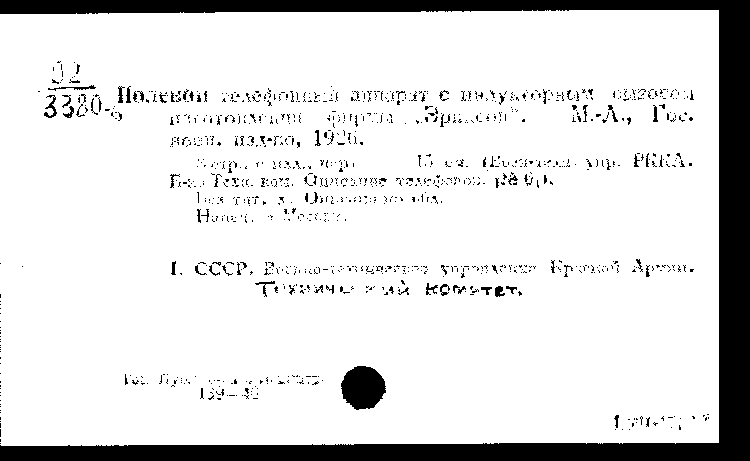 02
3380-6
Полевой телефонный аппарат с индукторным вызовом
изготовления фирмы „Эриксон“. М.-Л., Гос.
воен. изд-во, 1926.
с илл., черт. 15 см. (Воен-техн. упр. РККА.
Описание телефонов.
Без тит. л. Описано по обл.
Напеч. в Москве.
I. СССР. Военно-техническое управление Красной Армии.
Технический комитет.
139—40